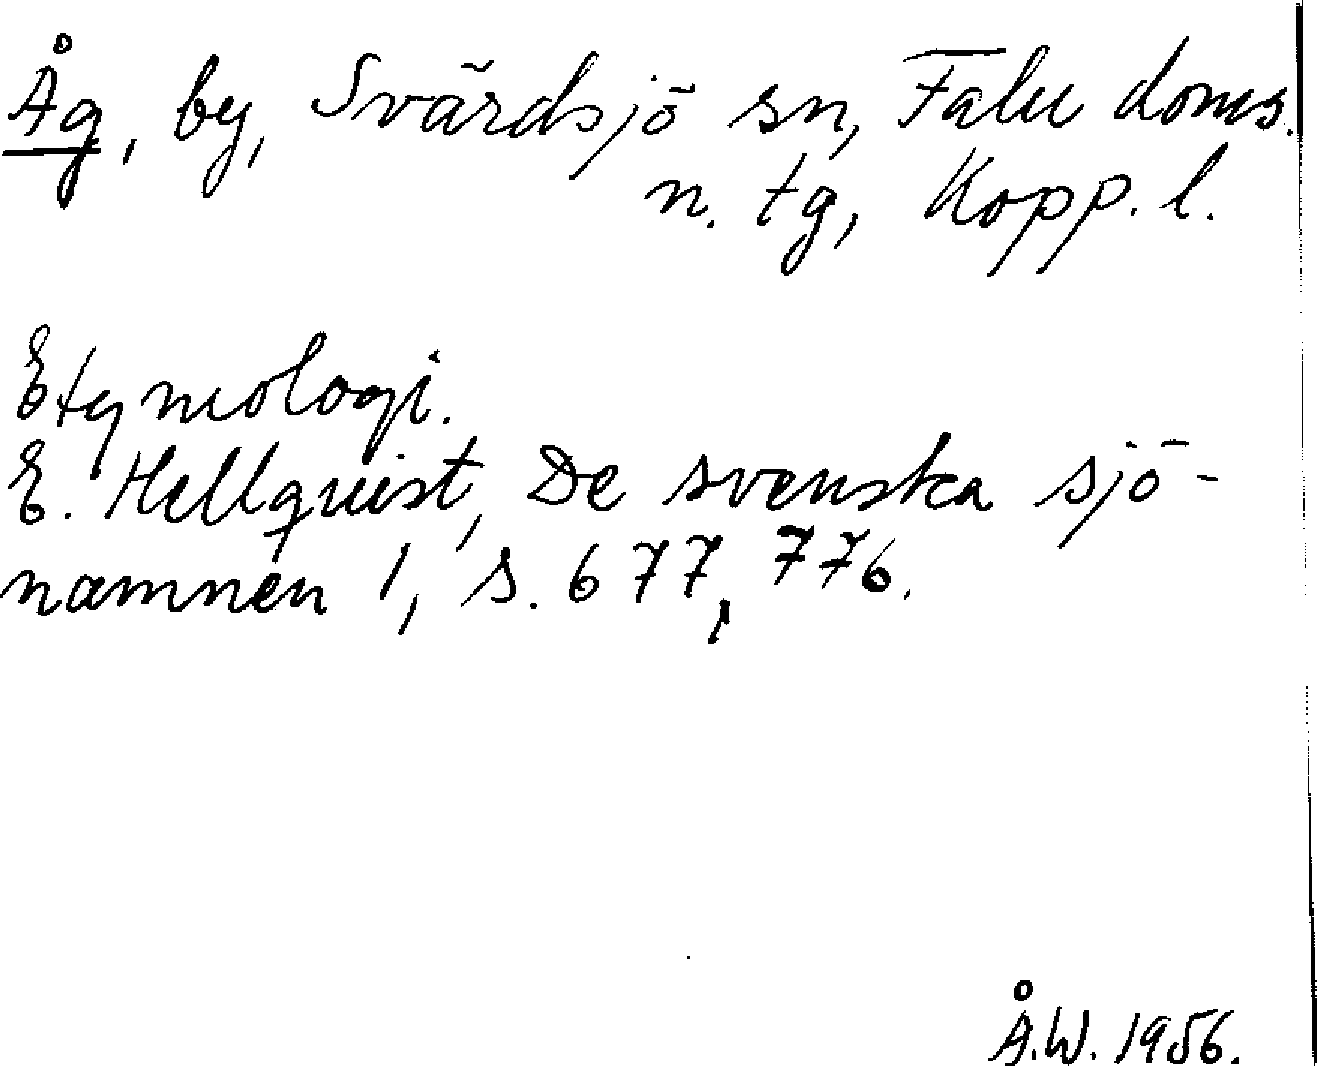 Åg, by, Svärdsjö sn, Falu doms.
n. tg, Kopp. l.
Etymologi.
E. Hellquist, De svenska sjö-
namnen 1, s. 677, 776.
Å.W. 1956.